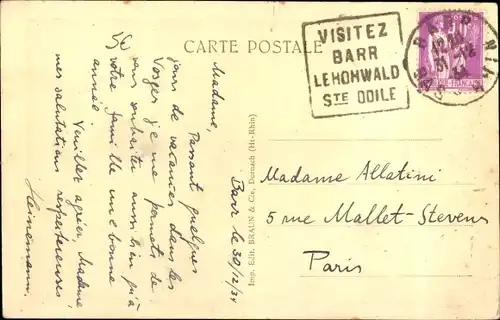 CARTE POSTALE
VISITEZ
BARR
LE HOHWALD
STE ODILE
BARR
31
Barr le 30/12/34
Madame,
Passant quelques
jours de vacances dans les
Vosges je me permets de
vous souhaiter aussi bien qu'à
votre famille une bonne
année.
Veuillez agréer, Madame,
mes salutations respectueuses,
Heinemann.
Imp. Edit. BRAUN & Cie, Dornach (Ht-Rhin)
Madame Allatini
5 rue Mallet-Stevens
Paris